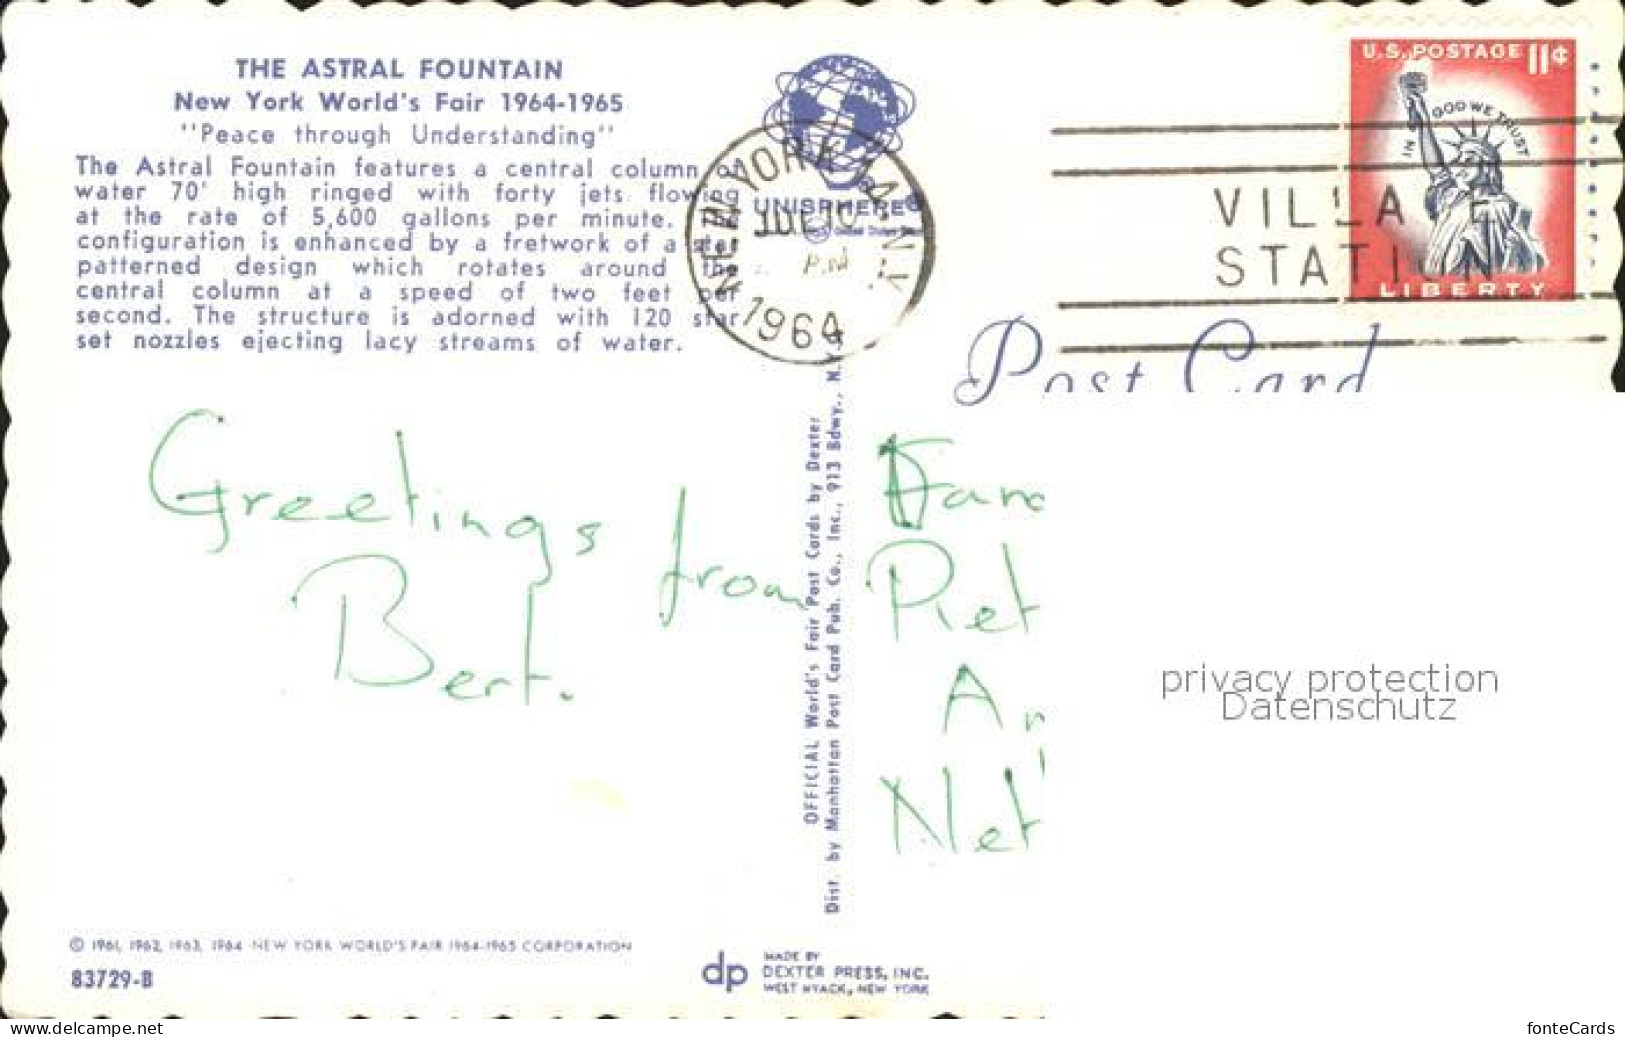 THE ASTRAL FOUNTAIN
New York World's Fair 1964-1965
"Peace through Understanding"
The Astral Fountain features a central column of
water 70' high ringed with forty jets flowing
at the rate of 5,600 gallons per minute. The
configuration is enhanced by a fretwork of a star
patterned design which rotates around the
central column at a speed of two feet per
second. The structure is adorned with 120 star
set nozzles ejecting lacy streams of water.
UNISPHERE®
NEW YORK, N.Y.
JUL 10
PM
1964
VILLAGE
STATION
U.S. POSTAGE 11¢
IN GOD WE TRUST
LIBERTY
Post Card
Greetings from
Bert.
Fam
Piet
An
Net
OFFICIAL World's Fair Post Cards by Dexter
Dist. by Manhattan Post Card Pub. Co., Inc., 913 Bdwy., N.Y.
privacy protection
Datenschutz
© 1961, 1962, 1963, 1964 NEW YORK WORLD'S FAIR 1964-1965 CORPORATION
83729-B
dp MADE BY
DEXTER PRESS, INC.
WEST NYACK, NEW YORK
www.delcampe.net
fonteCards